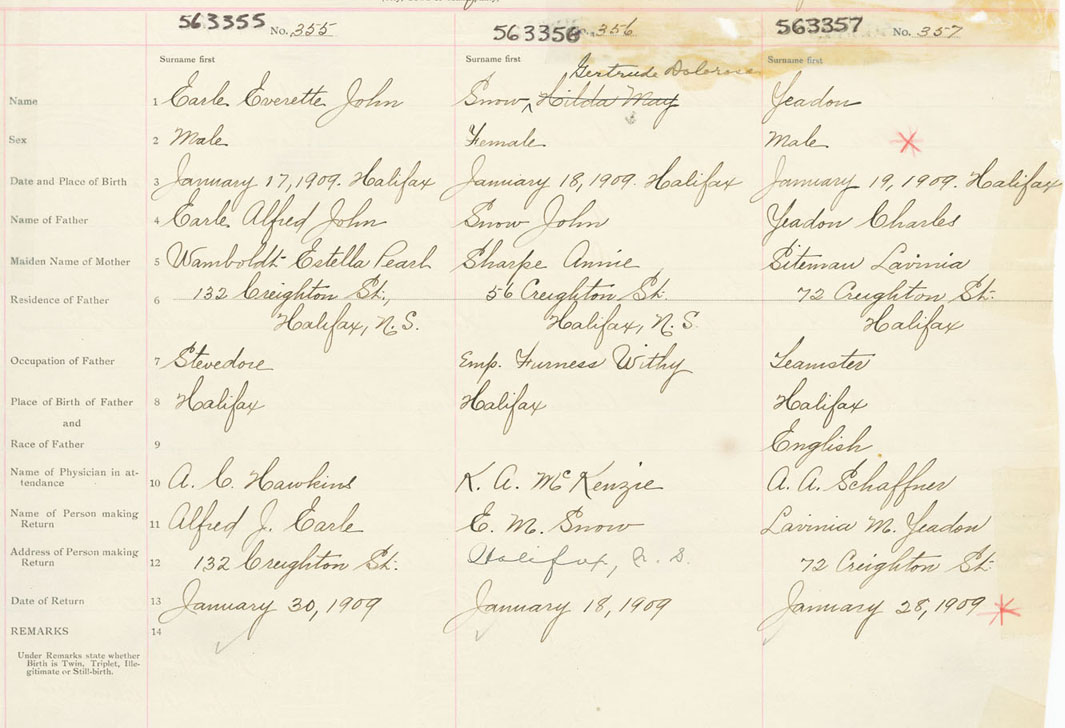 563355 No. 355
563356 No. 356
563357 No. 357
Surname first Surname first Surname first
Gertrude Dolorosa
Name 1 Earle Everette John Snow, ^ Hilda May Yeadon
Sex 2 Male Female Male
Date and Place of Birth 3 January 17, 1909. Halifax January 18, 1909. Halifax January 19, 1909. Halifax
Name of Father 4 Earle Alfred John Snow John Yeadon Charles
Maiden Name of Mother 5 Wamboldt Estella Pearl Sharpe Annie Siteman Lavinia
Residence of Father 6 132 Creighton St., 56 Creighton St. 72 Creighton St.
Halifax, N.S. Halifax, N.S. Halifax
Occupation of Father 7 Stevedore Emp. Furness Withy Teamster
Place of Birth of Father 8 Halifax Halifax Halifax
and
Race of Father 9 English
Name of Physician in at-
tendance 10 A. C. Hawkins K. A. McKenzie A. A. Schaffner
Name of Person making
Return 11 Alfred J. Earle E. M. Snow Lavinia M. Yeadon
Address of Person making
Return 12 132 Creighton St. Halifax, N. S. 72 Creighton St.
Date of Return 13 January 30, 1909 January 18, 1909 January 28, 1909
REMARKS 14
Under Remarks state whether
Birth is Twin, Triplet, Ille-
gitimate or Still-birth.